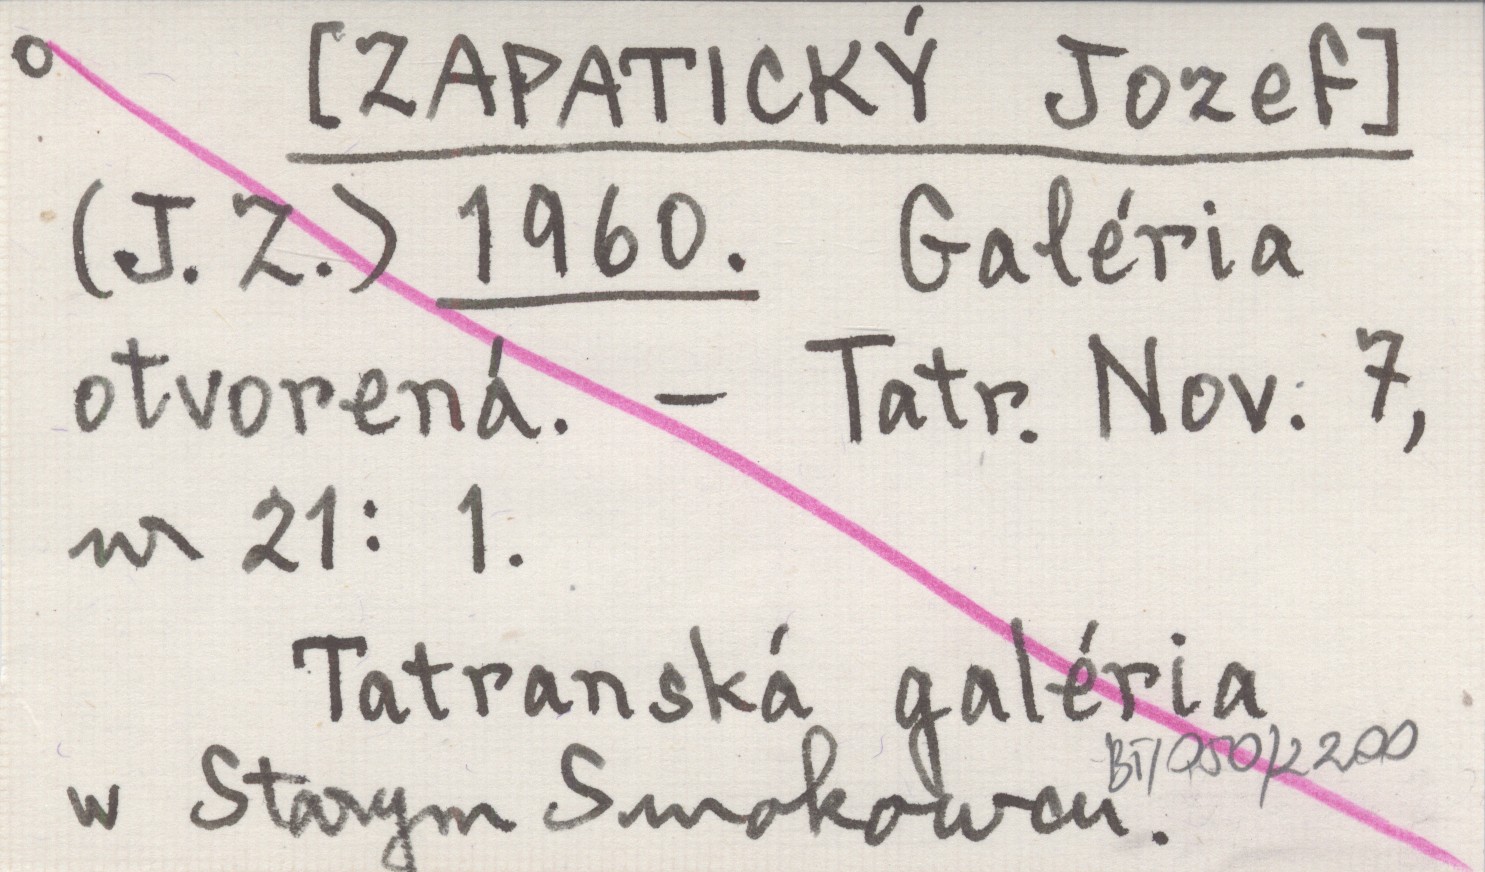 [ZAPATICKÝ Jozef]
(J. Z.) 1960. Galéria
otvorená. – Tatr. Nov. 7,
nr 21: 1.
Tatranská galéria
w Starym Smokowcu.
BT/050/2200